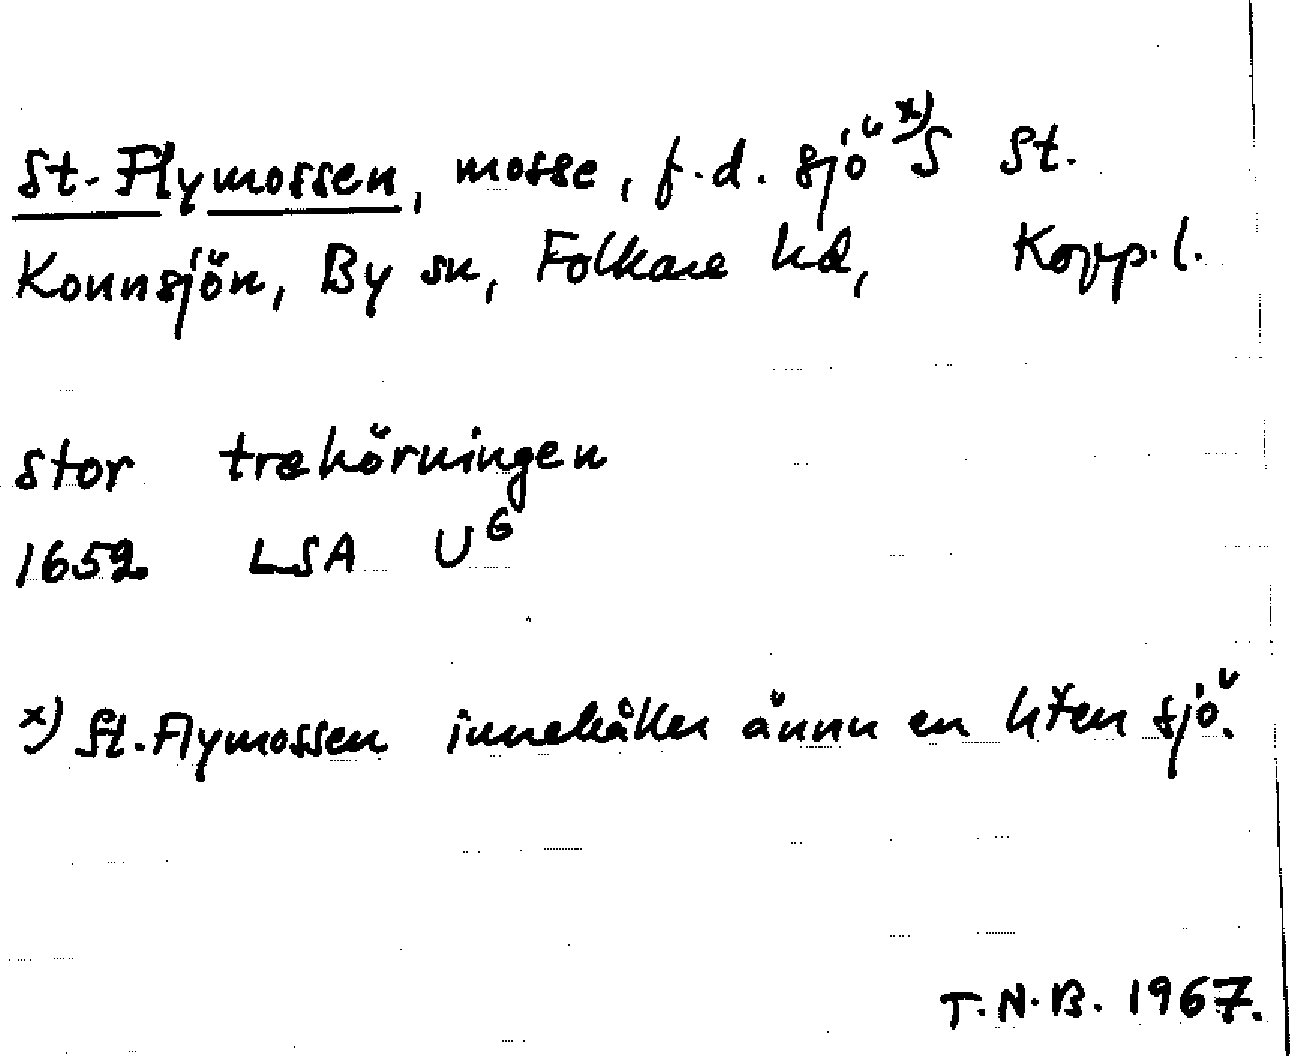 St. Flymossen, mosse, f.d. sjö x) S St.
Konnsjön, By sn, Folkare hd, Kopp. l.
stor trehörningen
1652 LSA U6
x) St. Flymossen innehåller ännu en liten sjö.
T.N.B. 1967.